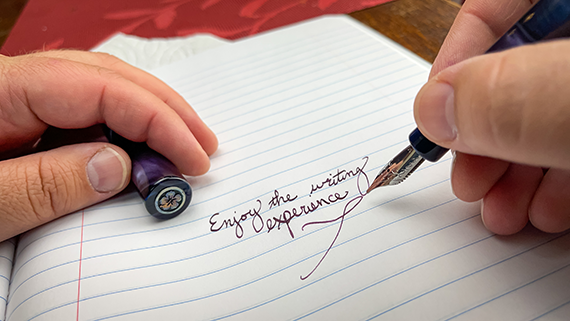 Enjoy the writing
experience